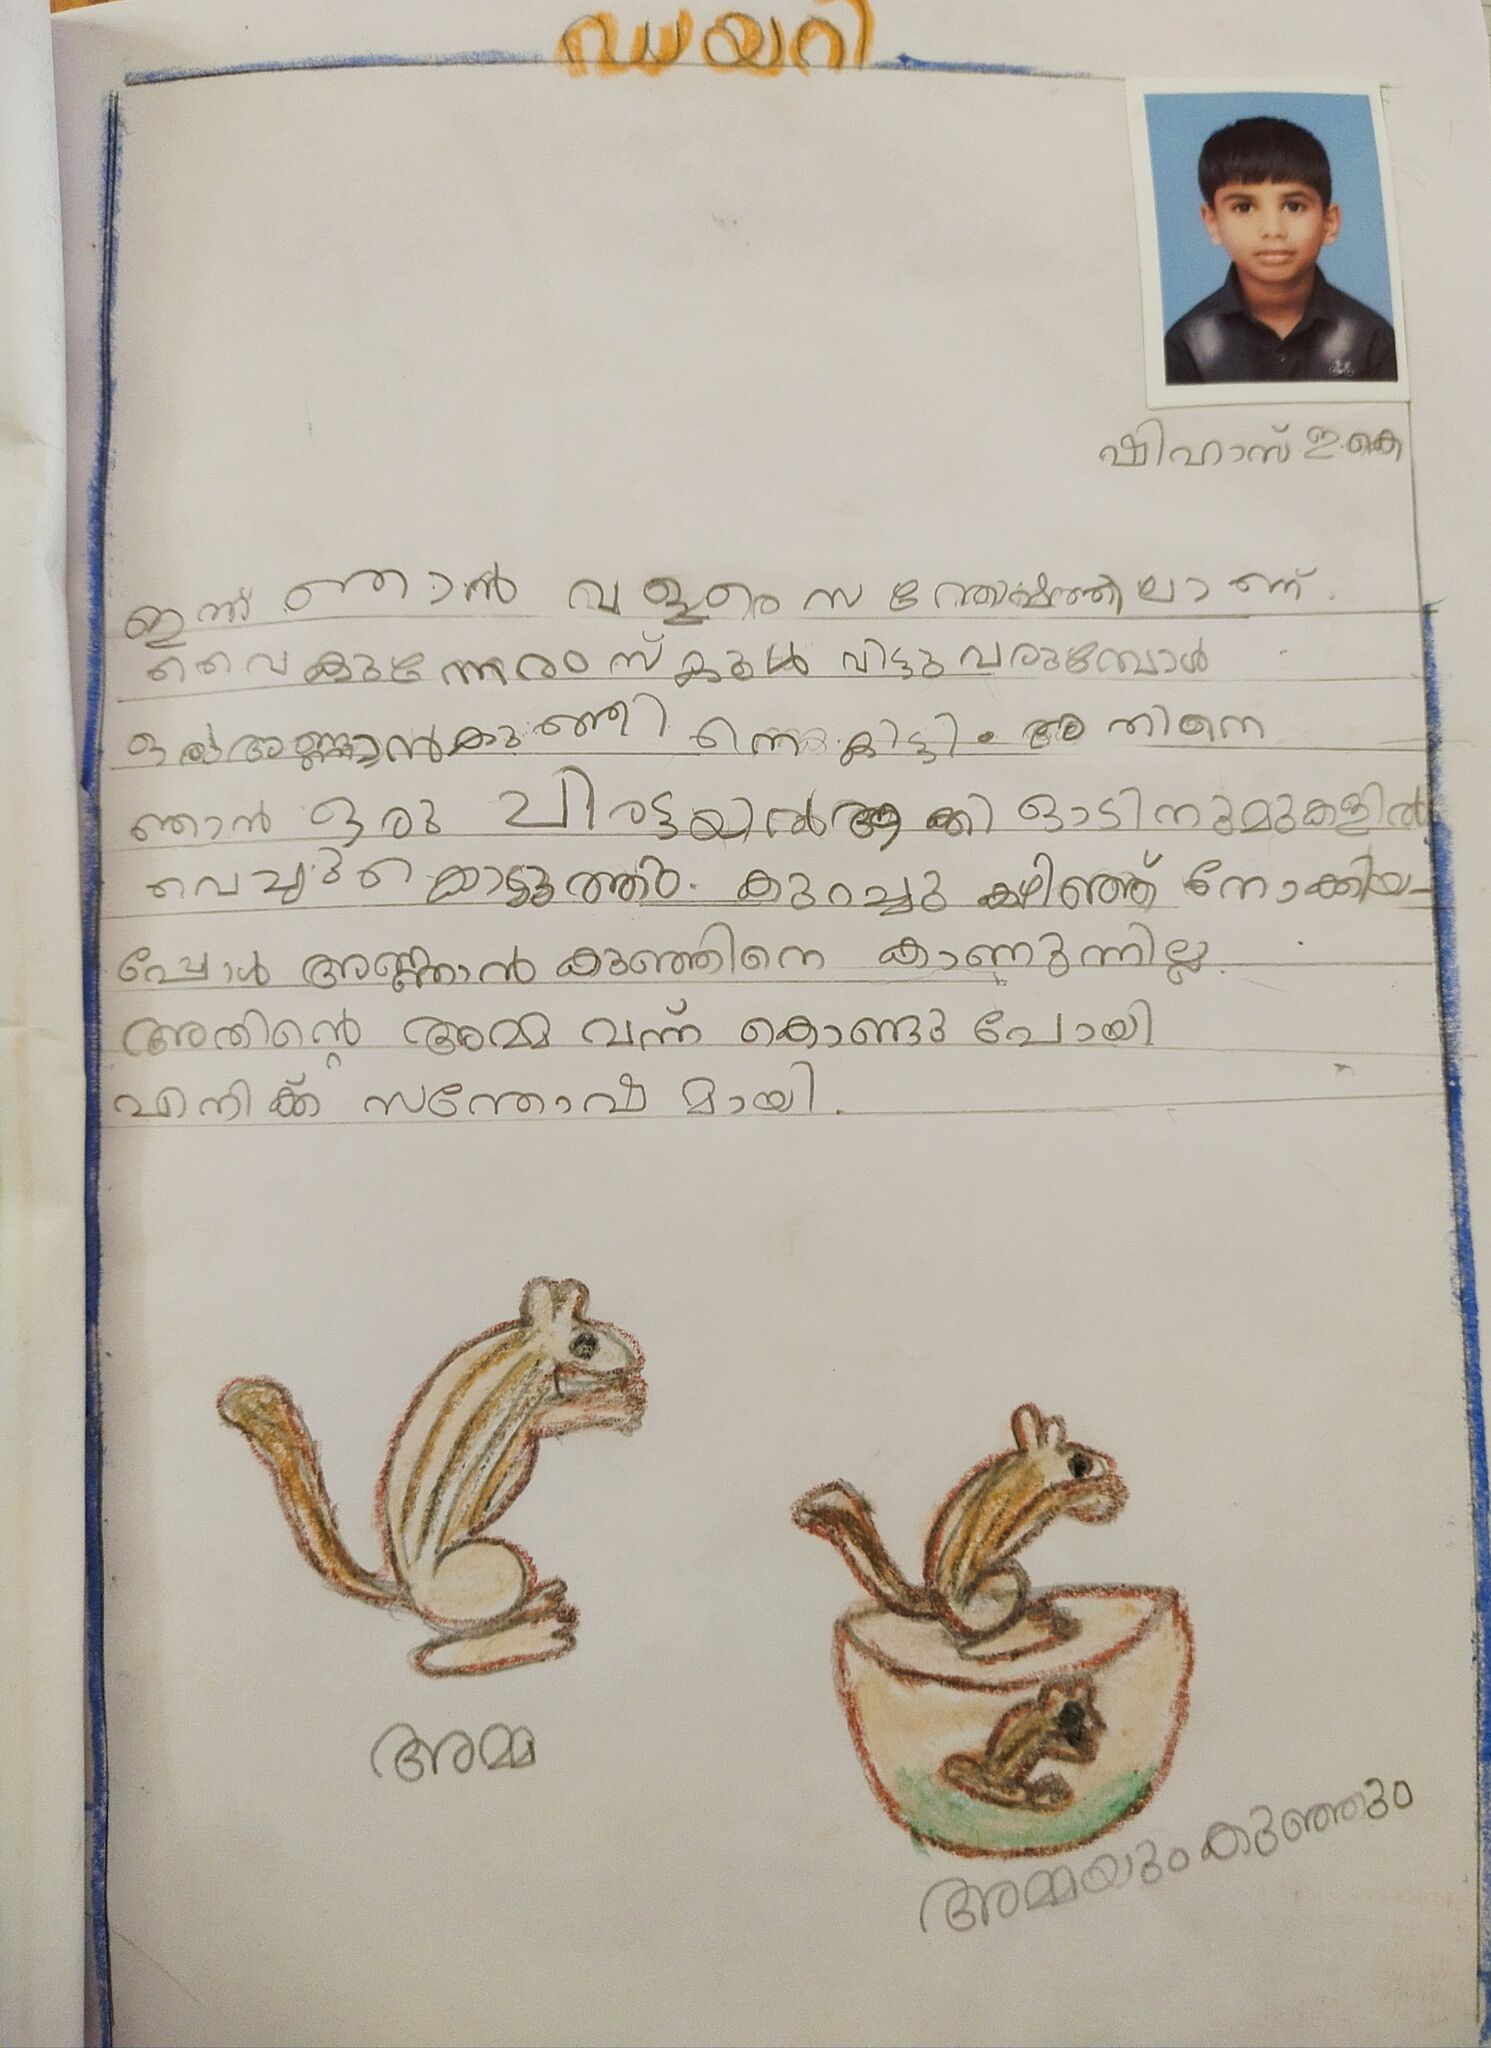 ഡയറി
ഷിഹാസ് ഇ.കെ
ഇന്ന് ഞാൻ വളരെ സന്തോഷത്തിലാണ്.
വൈകുന്നേരം സ്കൂൾ വിട്ടു വരുമ്പോൾ
ഒരു അണ്ണാൻകുഞ്ഞി നെ കിട്ടി. അതിനെ
ഞാൻ ഒരു ചിരട്ടയിൽ ആക്കി ഓടിനുമുകളിൽ
വെച്ചു കൊടുത്തു. കുറച്ചു കഴിഞ്ഞ് നോക്കിയ-
പ്പോൾ അണ്ണാൻ കുഞ്ഞിനെ കാണുന്നില്ല.
അതിന്റെ അമ്മ വന്ന് കൊണ്ടു പോയി
എനിക്ക് സന്തോഷ മായി.
അമ്മ
അമ്മയും കുഞ്ഞും